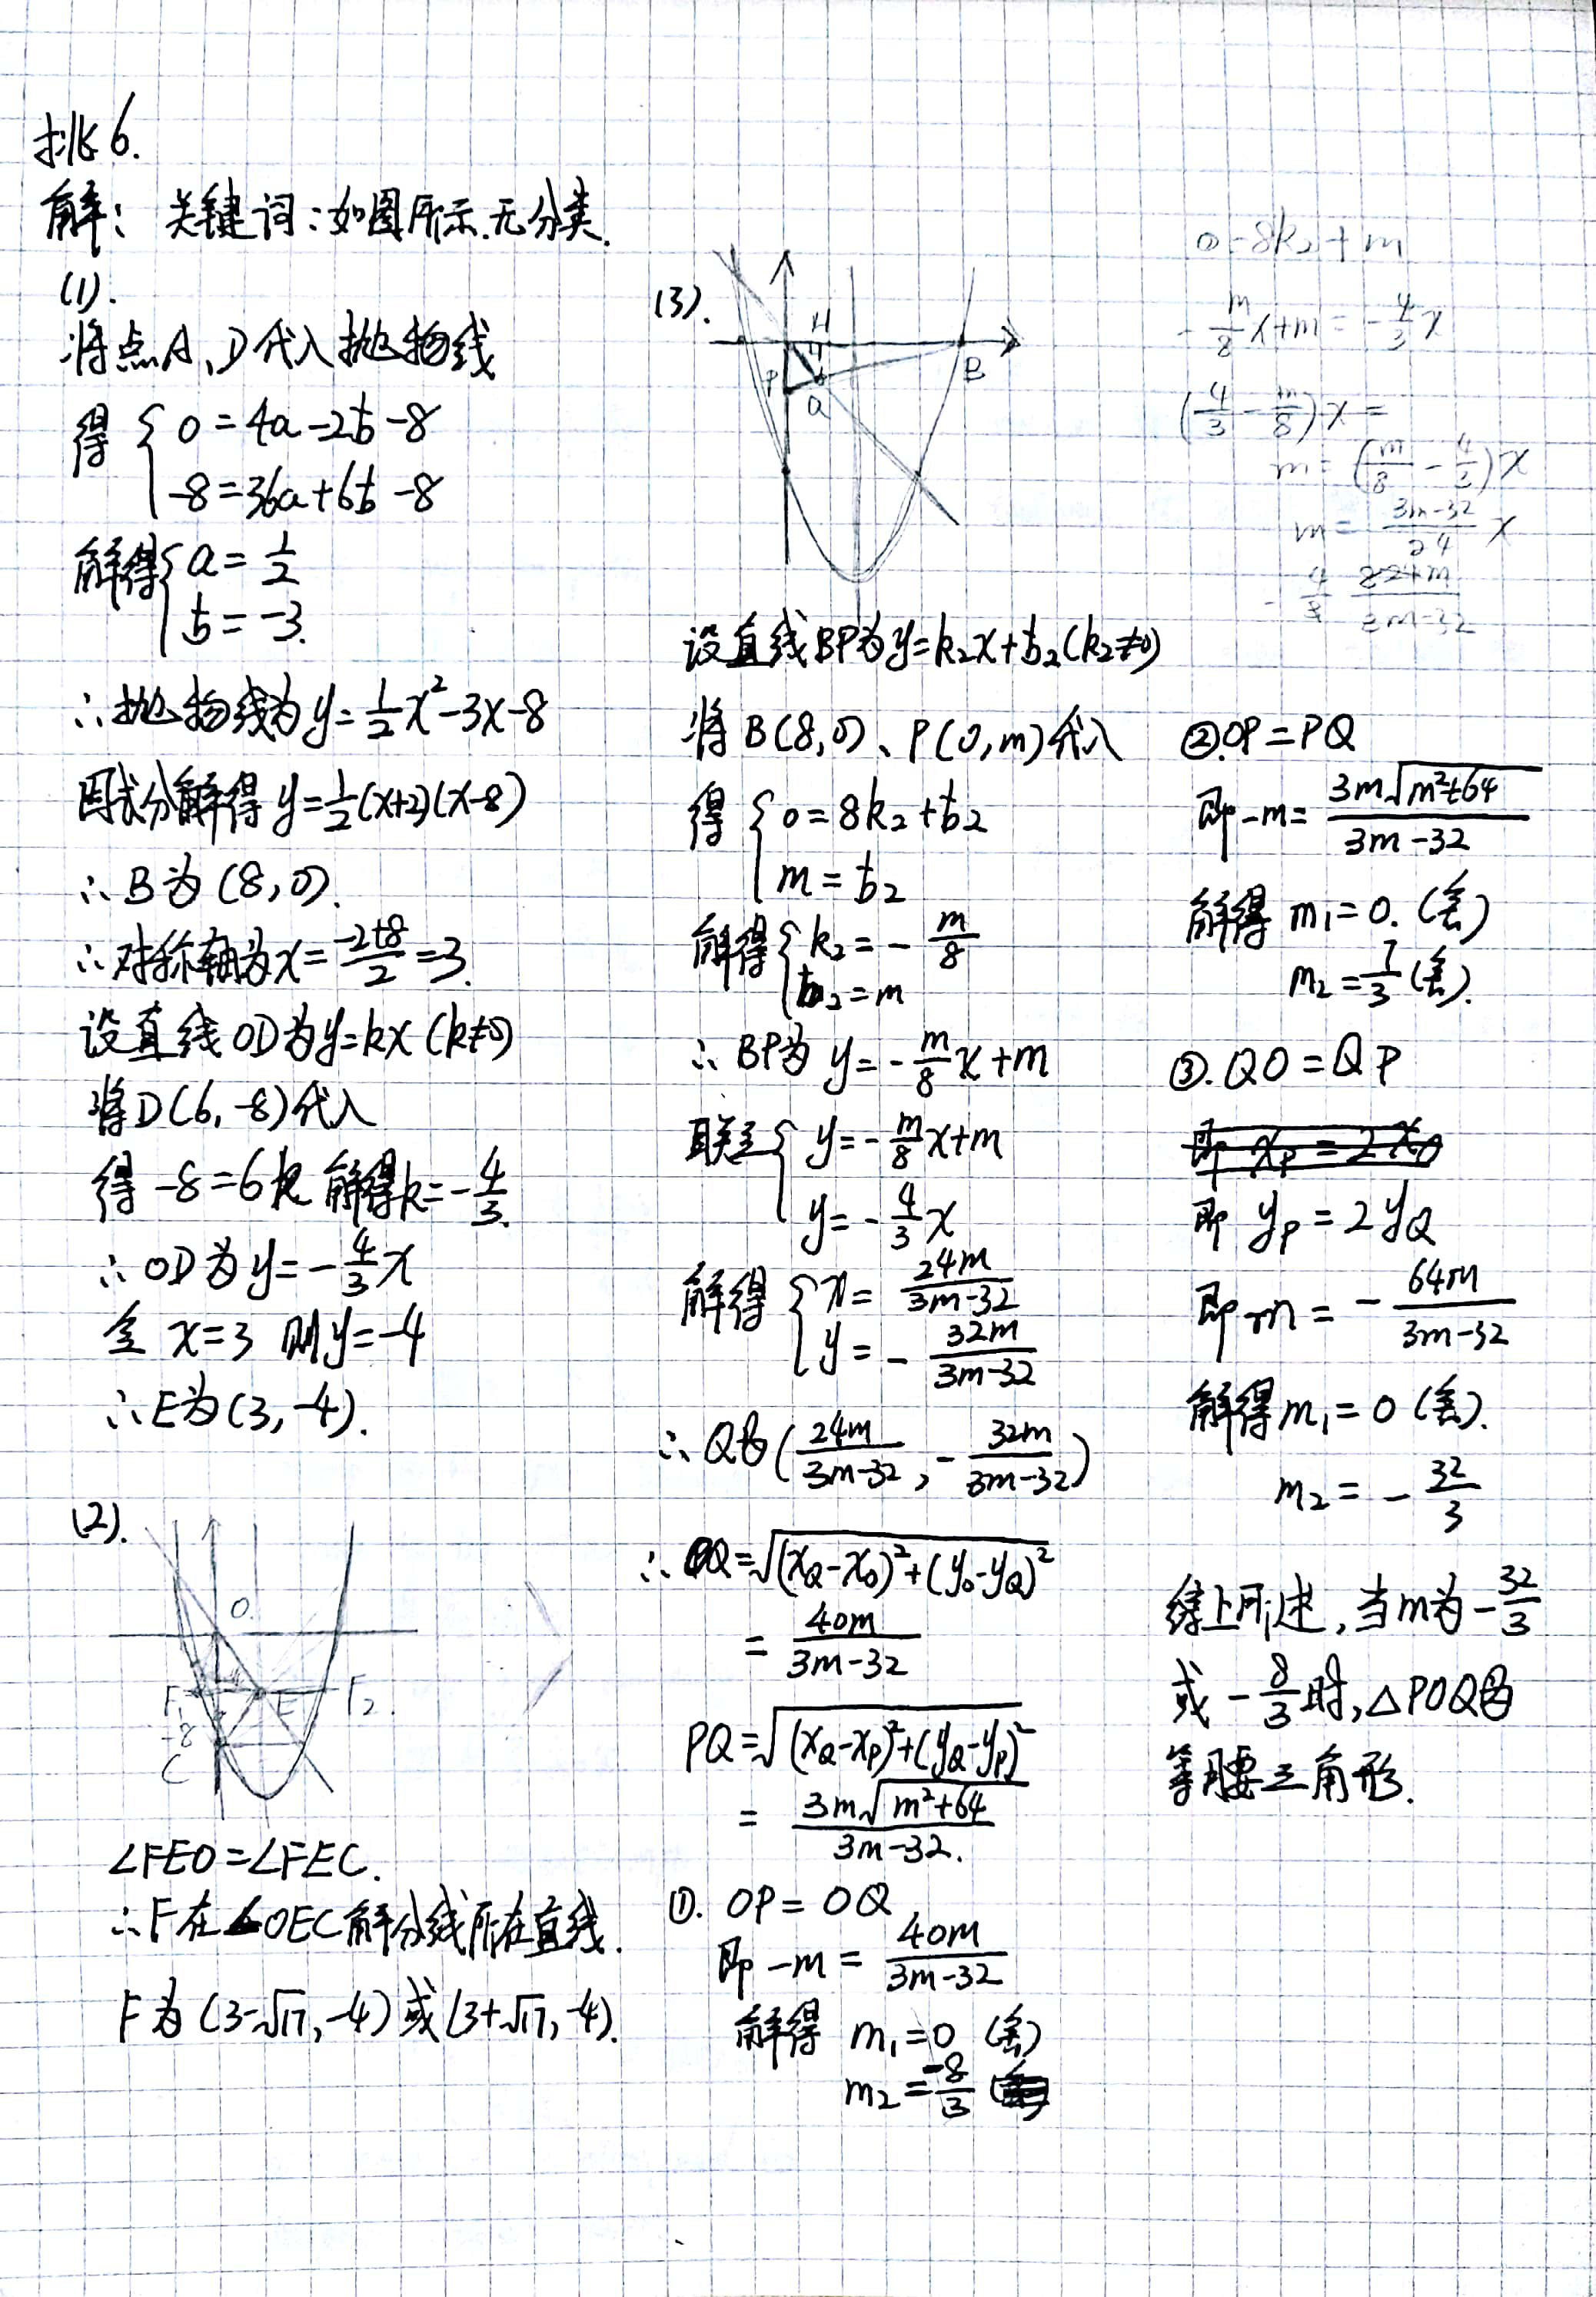 挑6.
解：关键词：如图所示.无分类.
(1).
将点A、D代入抛物线
得 { 0=4a-2b-8
-8=36a+6b-8
解得{ a=1/2
b=-3.
∴抛物线为y=1/2x²-3x-8
因式分解得y=1/2(x+2)(x-8)
∴B为(8,0).
∴对称轴为x=(-2+8)/2=3.
设直线OD为y=kx(k≠0)
将D(6,-8)代入
得 -8=6k 解得k=-4/3.
∴OD为y=-4/3x
令 x=3 则y=-4
∴E为(3,-4).
(2).
O
F₁
E
F₂
-8
C
∠FEO=∠FEC.
∴F在∠OEC角平分线所在直线.
F为(3-√17,-4)或(3+√17,-4).
(3).
H
P
Q
B
设直线BP为y=k₂x+b₂(k₂≠0)
将B(8,0)、P(0,m)代入
得 { 0=8k₂+b₂
m=b₂
解得{ k₂=-m/8
b₂=m
∴BP为 y=-m/8x+m
联立{ y=-m/8x+m
y=-4/3x
解得{ x=24m/(3m-32)
y=-32m/(3m-32)
∴Q为(24m/(3m-32),-32m/(3m-32))
∴OQ=√((x_Q-x_O)²+(y_O-y_Q)²)
=40m/(3m-32)
PQ=√((x_Q-x_P)²+(y_Q-y_P)²)
=3m√(m²+64)/(3m-32).
①. OP=OQ
即 -m=40m/(3m-32)
解得 m₁=0 (舍)
m₂=-8/3
0=8k₂+m
-m/8x+m=-4/3x
(4/3-m/8)x=
m=(m/8-4/3)x
m=(3m-32)/24 x
②.OP=PQ
即-m=3m√(m²+64)/(3m-32)
解得 m₁=0.(舍)
m₂=7/3(舍).
③.QO=QP
即 x_P=2x_Q
即 y_P=2y_Q
即 m=-64m/(3m-32)
解得m₁=0(舍).
m₂=-32/3
综上所述,当m为-32/3
或-8/3时,△POQ为
等腰三角形.